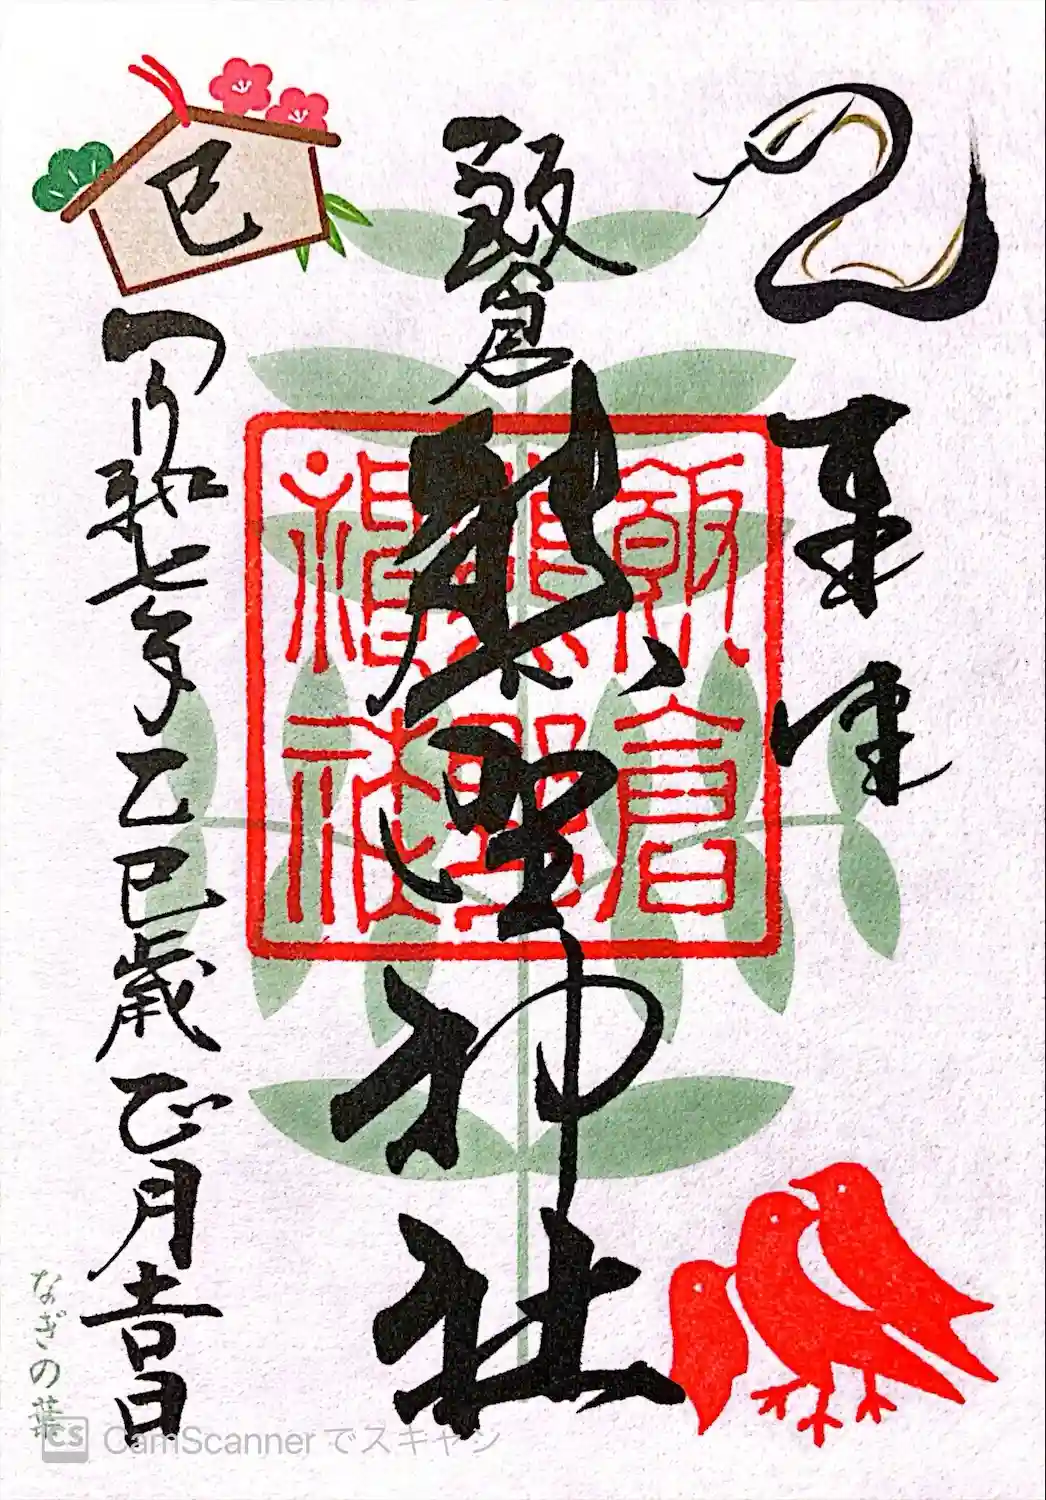 奉拝
飯倉
熊野神社
飯倉
熊野
神社
巳
令和七年乙巳歳正月吉日
なぎの葉
CS CamScannerでスキャン